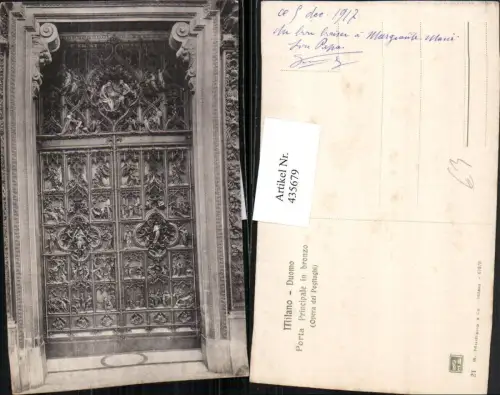 ce 5 dec. 1917
un bon baiser à Marguerite
son Papa
Artikel Nr.
435679
Milano - Duomo
Porta Principale in bronzo
(Opera del Pogliaghi)
21
63